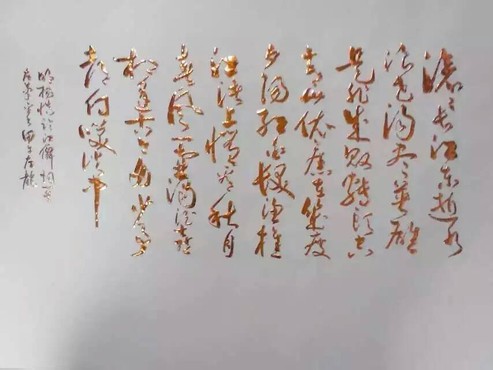 滚々长江东逝水
浪花淘尽英雄
是非成败转头空
青山依旧在几度
夕阳红白发渔樵
江渚上惯看秋月
春风一壶浊酒喜
相逢古今多少事
都付笑谈中
明杨慎临江仙